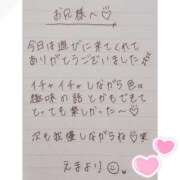 お兄様へ♡
今日は遊びに来てくれて
ありがとうございました
イチャイチャしながら色々
趣味の話とかもできて
とっても楽しかった♡
次も我慢しながらね♡笑
えまより☺